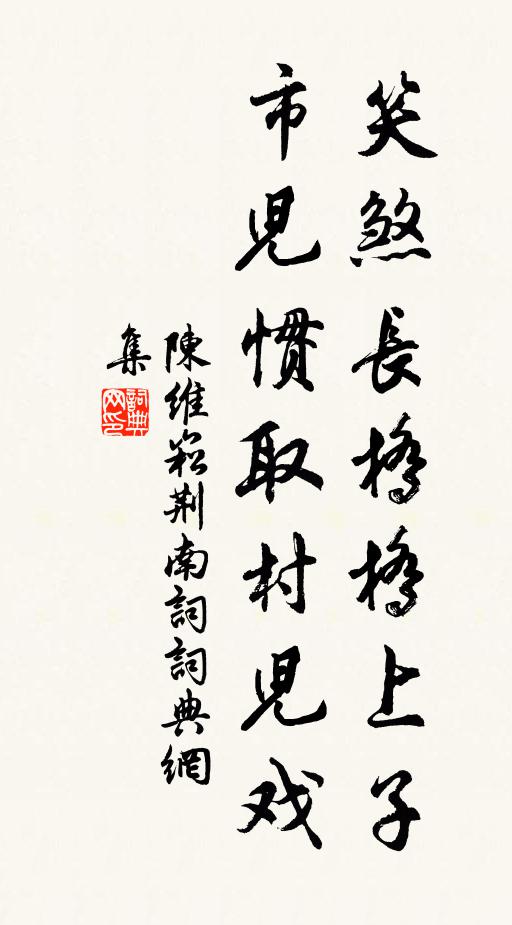 笑煞長橋橋上子
市児慣取村児戏
陳維崧荆南詞詞典網
集
詞典
网印